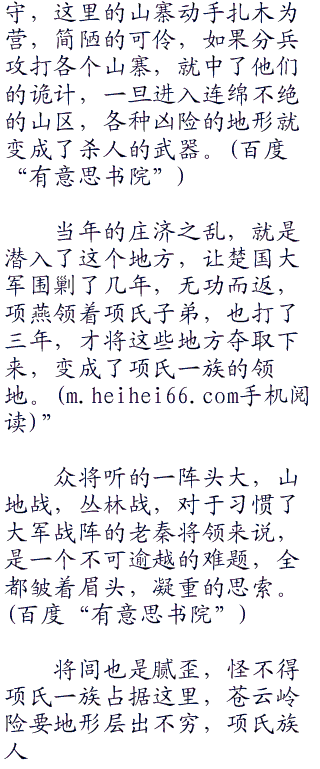 守，这里的山寨动手扎木为
营，简陋的可伶，如果分兵
攻打各个山寨，就中了他们
的诡计，一旦进入连绵不绝
的山区，各种凶险的地形就
变成了杀人的武器。(百度
“有意思书院”)
当年的庄济之乱，就是
潜入了这个地方，让楚国大
军围剿了几年，无功而返，
项燕领着项氏子弟，也打了
三年，才将这些地方夺取下
来，变成了项氏一族的领
地。(m.heihei66.com手机阅
读)”
众将听的一阵头大，山
地战，丛林战，对于习惯了
大军战阵的老秦将领来说，
是一个不可逾越的难题，全
都皱着眉头，凝重的思索。
(百度“有意思书院”)
将闾也是腻歪，怪不得
项氏一族占据这里，苍云岭
险要地形层出不穷，项氏族
人